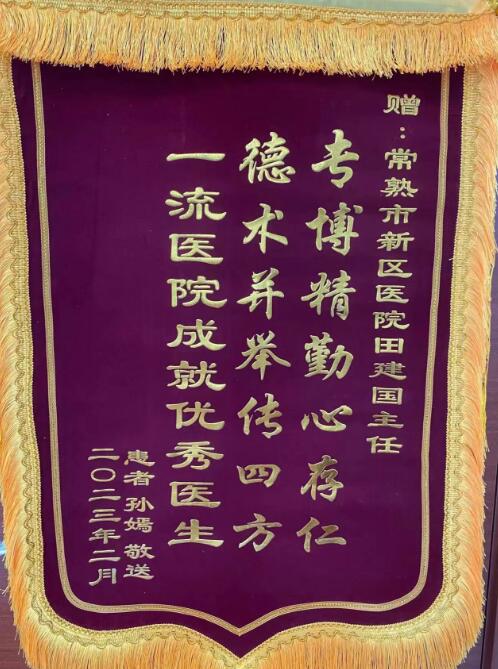 赠：常熟市新区医院田建国主任
专博精勤心存仁
德术并举传四方
一流医院成就优秀医生
患者 孙嫣 敬送
二〇二三年二月